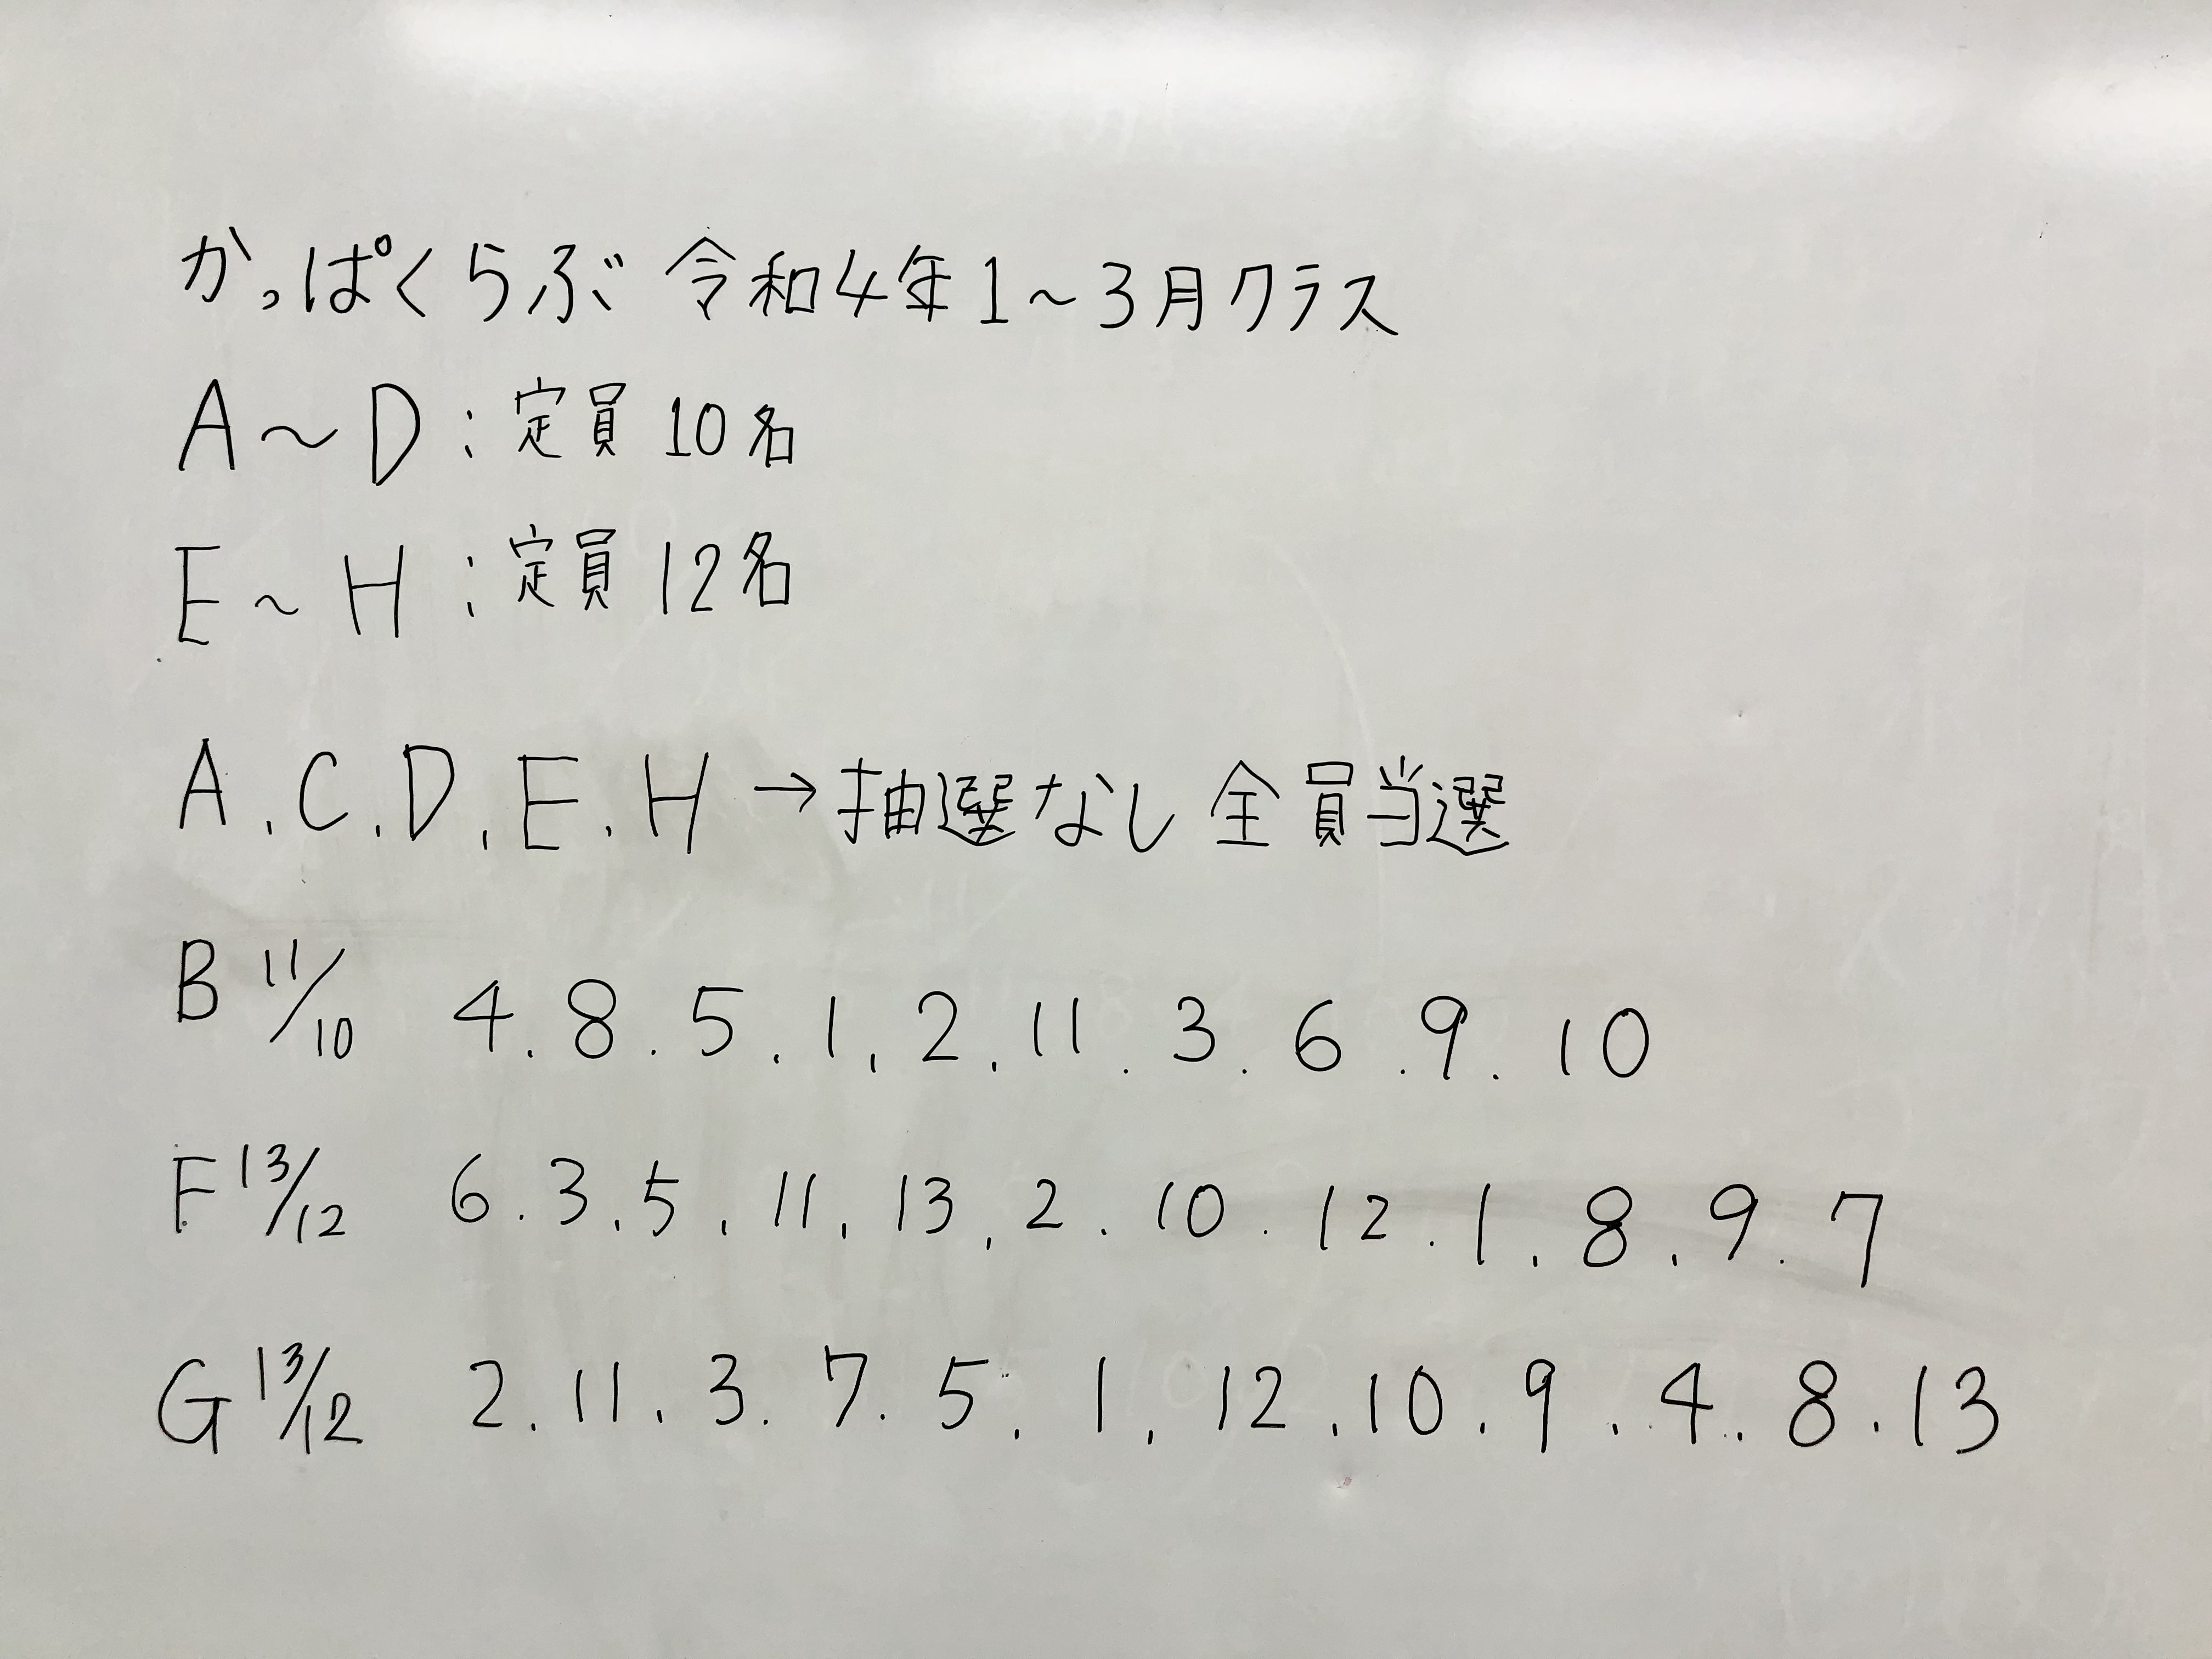 かっぱくらぶ 令和4年1～3月クラス
A～D:定員10名
E～H:定員12名
A.C.D.E.H→抽選なし 全員当選
B 11/10 4.8.5.1.2.11.3.6.9.10
F 13/12 6.3.5.11.13.2.10.12.1.8.9.7
G 13/12 2.11.3.7.5.1.12.10.9.4.8.13